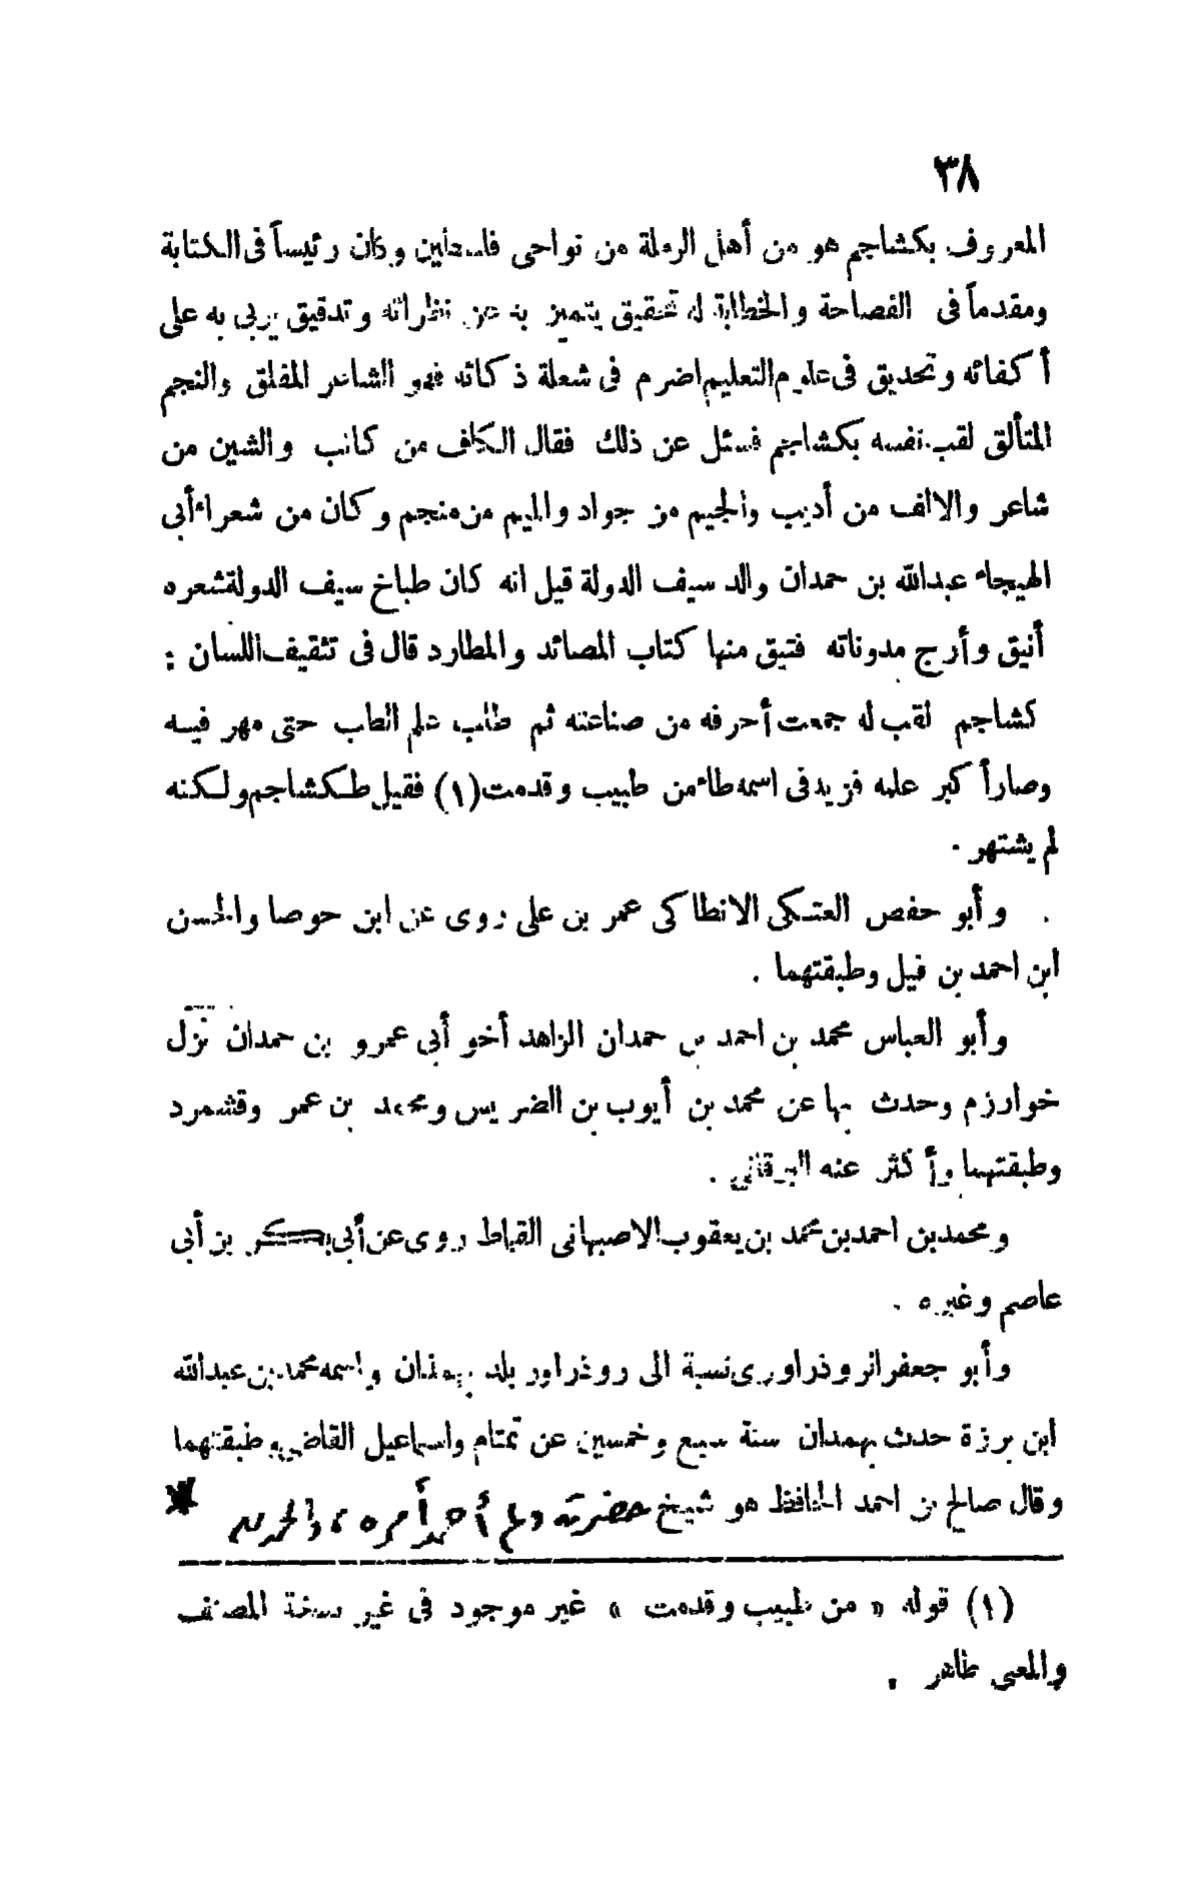 ٣٨
المعروف بكشاجم هو من أهل الرملة من نواحى فلسطين وكان رئيساً فى الكتابة
ومقدماً فى الفصاحة والخطابة له تحقيق يتميز به عن نظرائه وتدقيق يربى به على
أكفائه وتحديق فى علوم التعليم اضرم فى شعلة ذكائه فهو الشاعر المفلق والنجم
المتألق لقب نفسه بكشاجم فسئل عن ذلك فقال الكاف من كاتب والشين من
شاعر والالف من أديب والجيم من جواد والميم من منجم وكان من شعراء أبى
الهيجاء عبدالله بن حمدان والد سيف الدولة قيل انه كان طباخ سيف الدولة شعره
أنيق وأرج مدوناته فتيق منها كتاب المصائد والمطارد قال فى تثقيف اللسان :
كشاجم لقب له جمعت أحرفه من صناعته ثم طلب علم الطب حتى مهر فيه
وصار أكبر علمه فزيد فى اسمه طاء من طبيب وقدمت (١) فقيل طكشاجم ولكنه
لم يشتهر .
وأبو حفص العتكى الانطاكى عمر بن على روى عن ابن حوصا والحسن
ابن احمد بن فيل وطبقتهما .
وأبو العباس محمد بن احمد بن حمدان الزاهد أخو أبى عمرو بن حمدان نزل
خوارزم وحدث بها عن محمد بن أيوب بن الضريس ومحمد بن عمر وقشمرد
وطبقتهما وأكثر عنه البرقانى .
ومحمد بن احمد بن محمد بن يعقوب الاصبهانى القباط روى عن أبى بكر بن أبى
عاصم وغيره .
وأبو جعفر الروذراورى نسبة الى روذراور بلد بهمذان واسمه محمد بن عبدالله
ابن برزة حدث بهمدان سنة سبع وخمسين عن تمتام واسماعيل القاضى وطبقتهما
وقال صالح بن احمد الحافظ هو شيخ حضرته ولم أحمد أمره ، والحمد لله
(١) قوله « من طبيب وقدمت » غير موجود فى غير نسخة المصنف
والمعنى ظاهر .